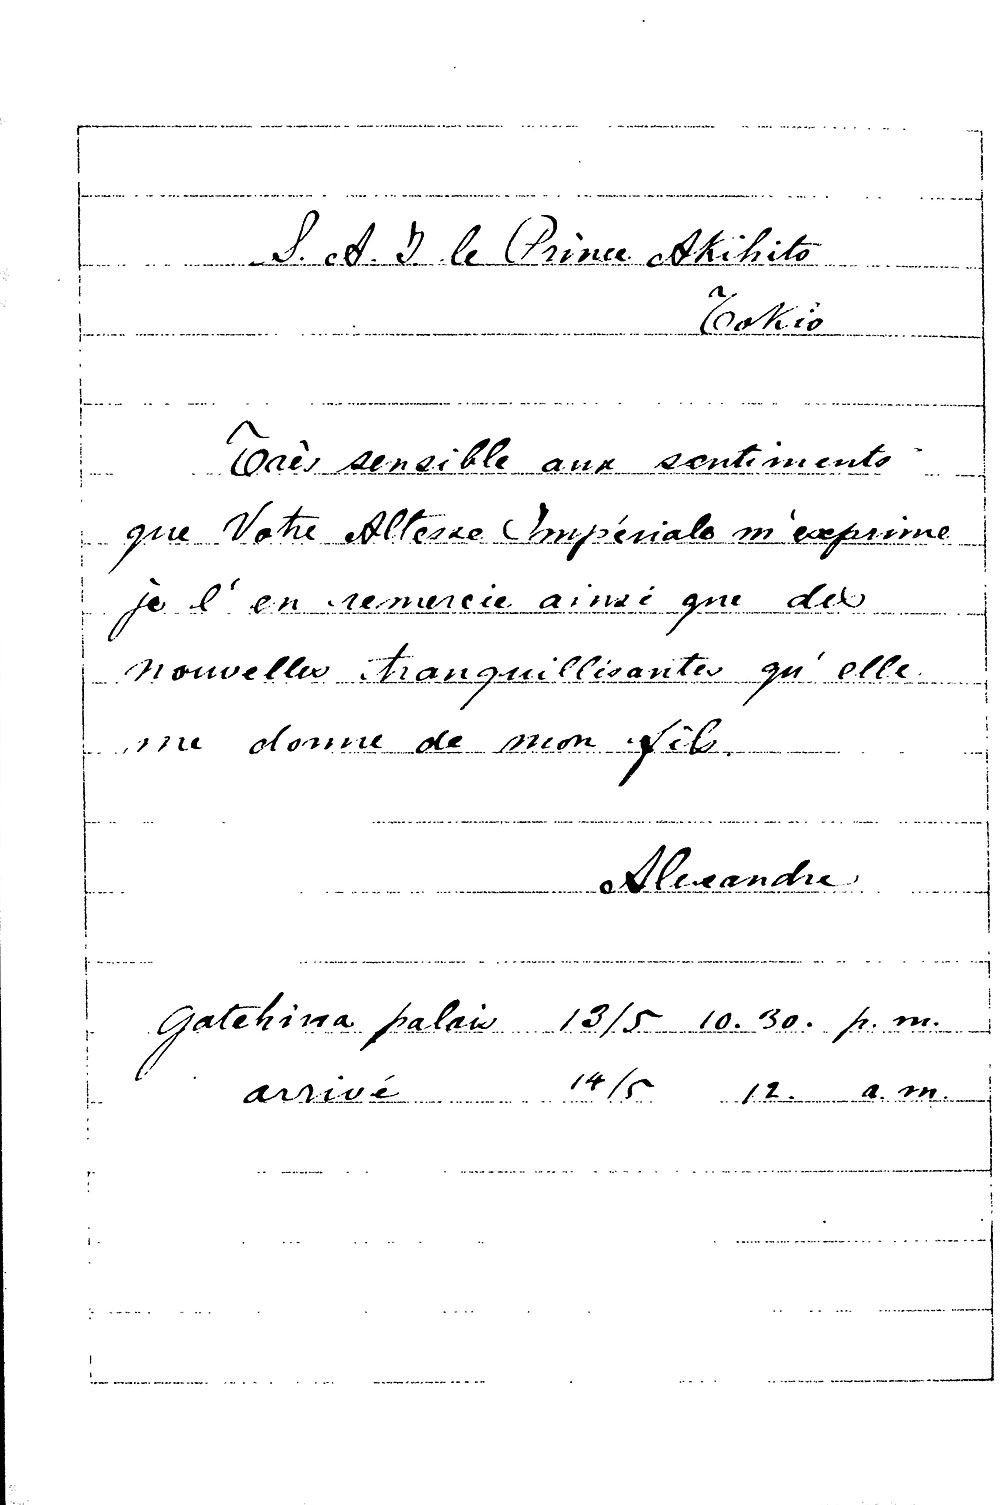 S. A. I le Prince Akihito
Tokio
Très sensible aux sentiments
que Votre Altesse Impériale m'exprime
je l'en remercie ainsi que des
nouvelles tranquillisantes qu'elle
me donne de mon fils.
Alexandre
Gatchina palais 13/5 10.30. p.m.
arrivé 14/5 12. a.m.